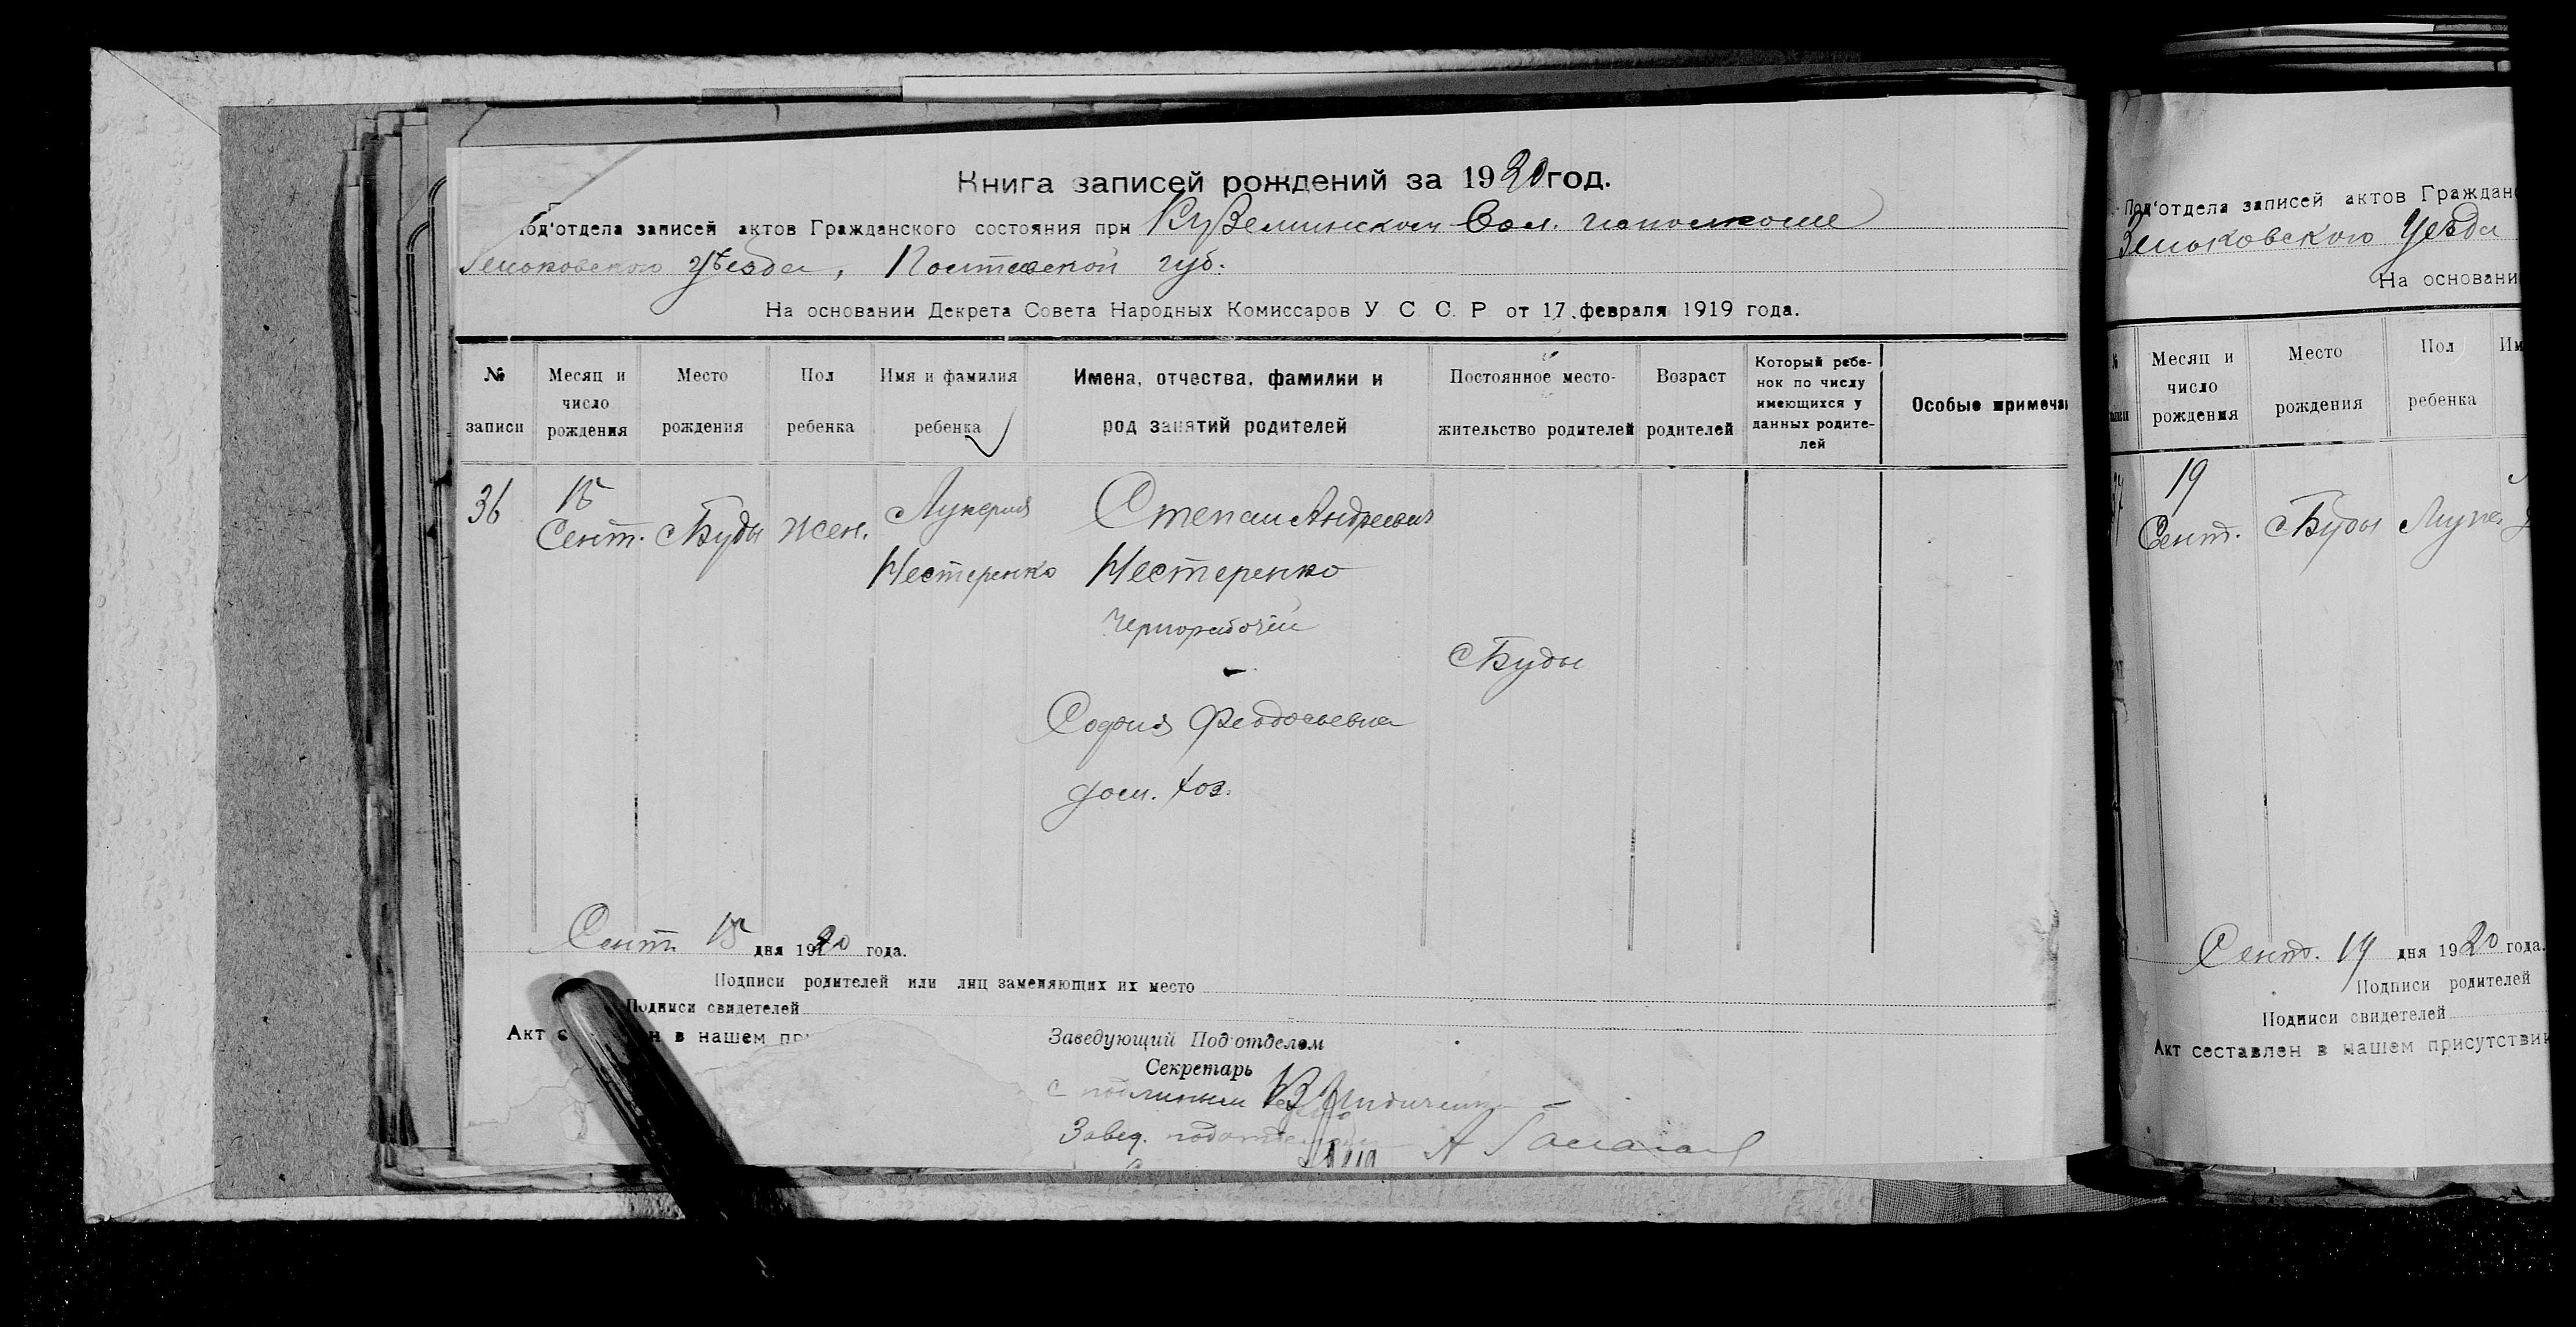 Книга записей рождений за 1920 год.
Под'отдела записей актов Гражданского состояния при Куземинском Вол. исполкоме
Зеньковского уезда, Полтавской губ.
На основании Декрета Совета Народных Комиссаров У С С Р от 17 февраля 1919 года.
№ записи
Месяц и число рождения
Место рождения
Пол ребенка
Имя и фамилия ребенка
Имена, отчества, фамилии и род занятий родителей
Постоянное место-жительство родителей
Возраст родителей
Который ребе-нок по числу имеющихся у данных родите-лей
Особые примеча
36
15 Сент.
с Буды
жен.
Лукерия
Нестеренко
Степан Андреевич
Нестеренко
Чернорабочий
София Феодосьевна
дом. хоз.
с Буды
Сент 15 дня 1920 года.
Подписи родителей или лиц заменяющих их место
Подписи свидетелей
Акт с н в нашем пр
Заведующий Под'отделом
Секретарь
С подлинным
Завед. подотделом
Под'отдела записей актов Граждан
Зеньковского Уезда
На основани
Месяц и число рождения
Место рождения
Пол ребенка
Им
19 Сент.
с Буды
Муже.
Сент. 19 дня 1920 года.
Подписи родителей
Подписи свидетелей
Акт составлен в нашем присутствии